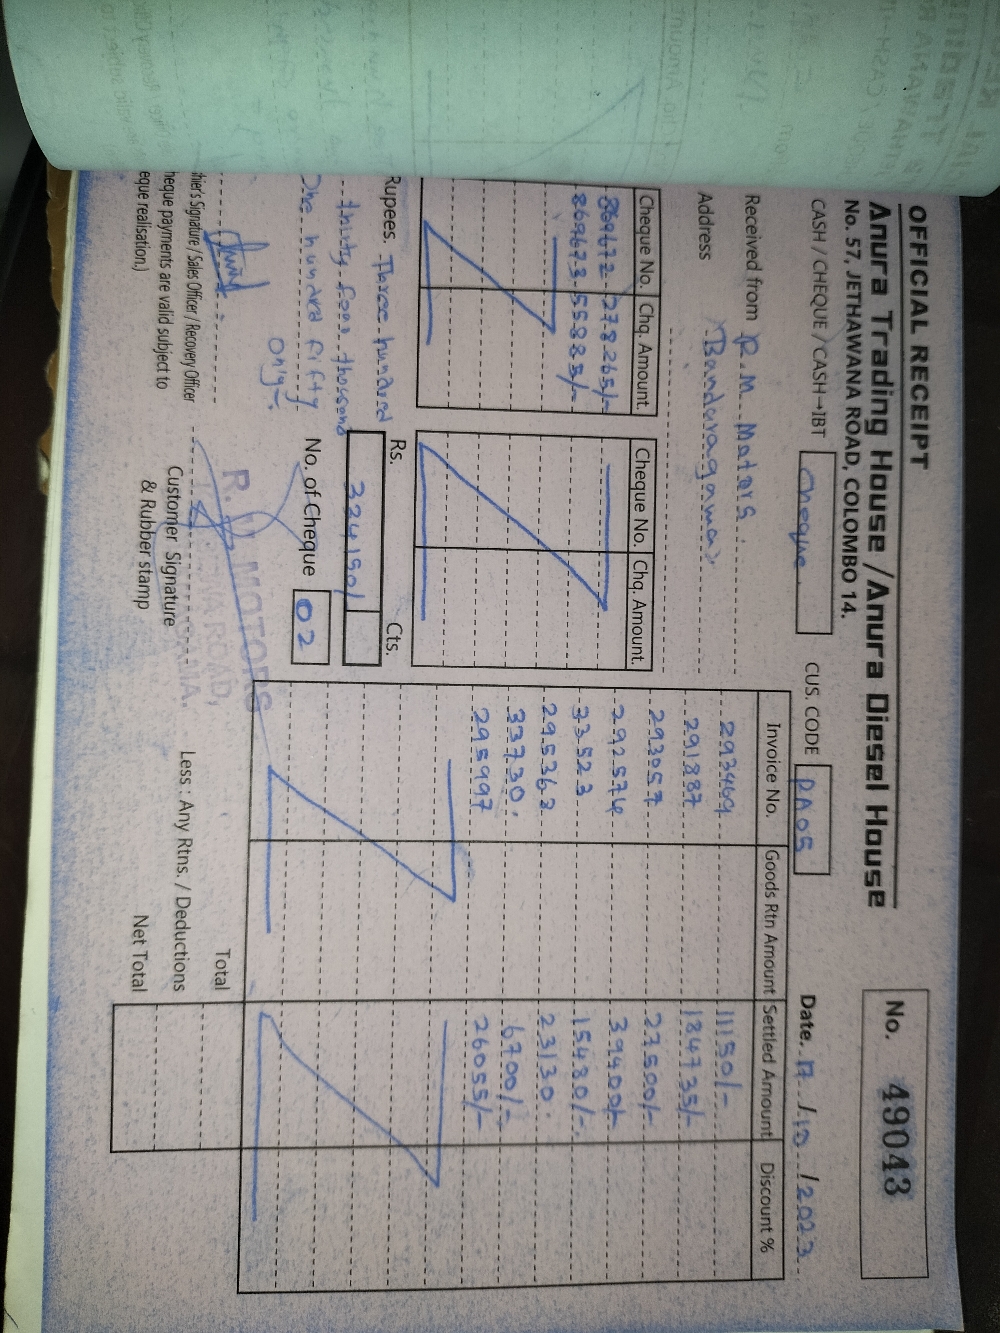 OFFICIAL RECEIPT
No. 49043
Anura Trading House / Anura Diesel House
No. 57, JETHAWANA ROAD, COLOMBO 14.
CASH / CHEQUE / CASH→IBT Cheque. CUS. CODE RA05 Date. 17 / 10 / 2023
Received from R.M. Motors.
Address (Bandaragama)
Cheque No. Chq. Amount.
869672 - 278265/-
869673 - 55885/-
Cheque No. Chq. Amount.
Invoice No. Goods Rtn Amount Settled Amount Discount %
293469 11150/-
291887 184735/-
293057 27500/-
292574 39400/-
33523 15480/-
295362 23130.
33730. 6700/-
295997 26055/-
Rs. Cts.
Rupees. Three hundred
thirty four thousand
One hundred fifty
only.
334150/
No. of Cheque 02
R. MOTORS
ROAD,
Total
Less : Any Rtns. / Deductions
Net Total
hier's Signature / Sales Officer / Recovery Officer
heque payments are valid subject to
eque realisation.)
Customer Signature
& Rubber stamp